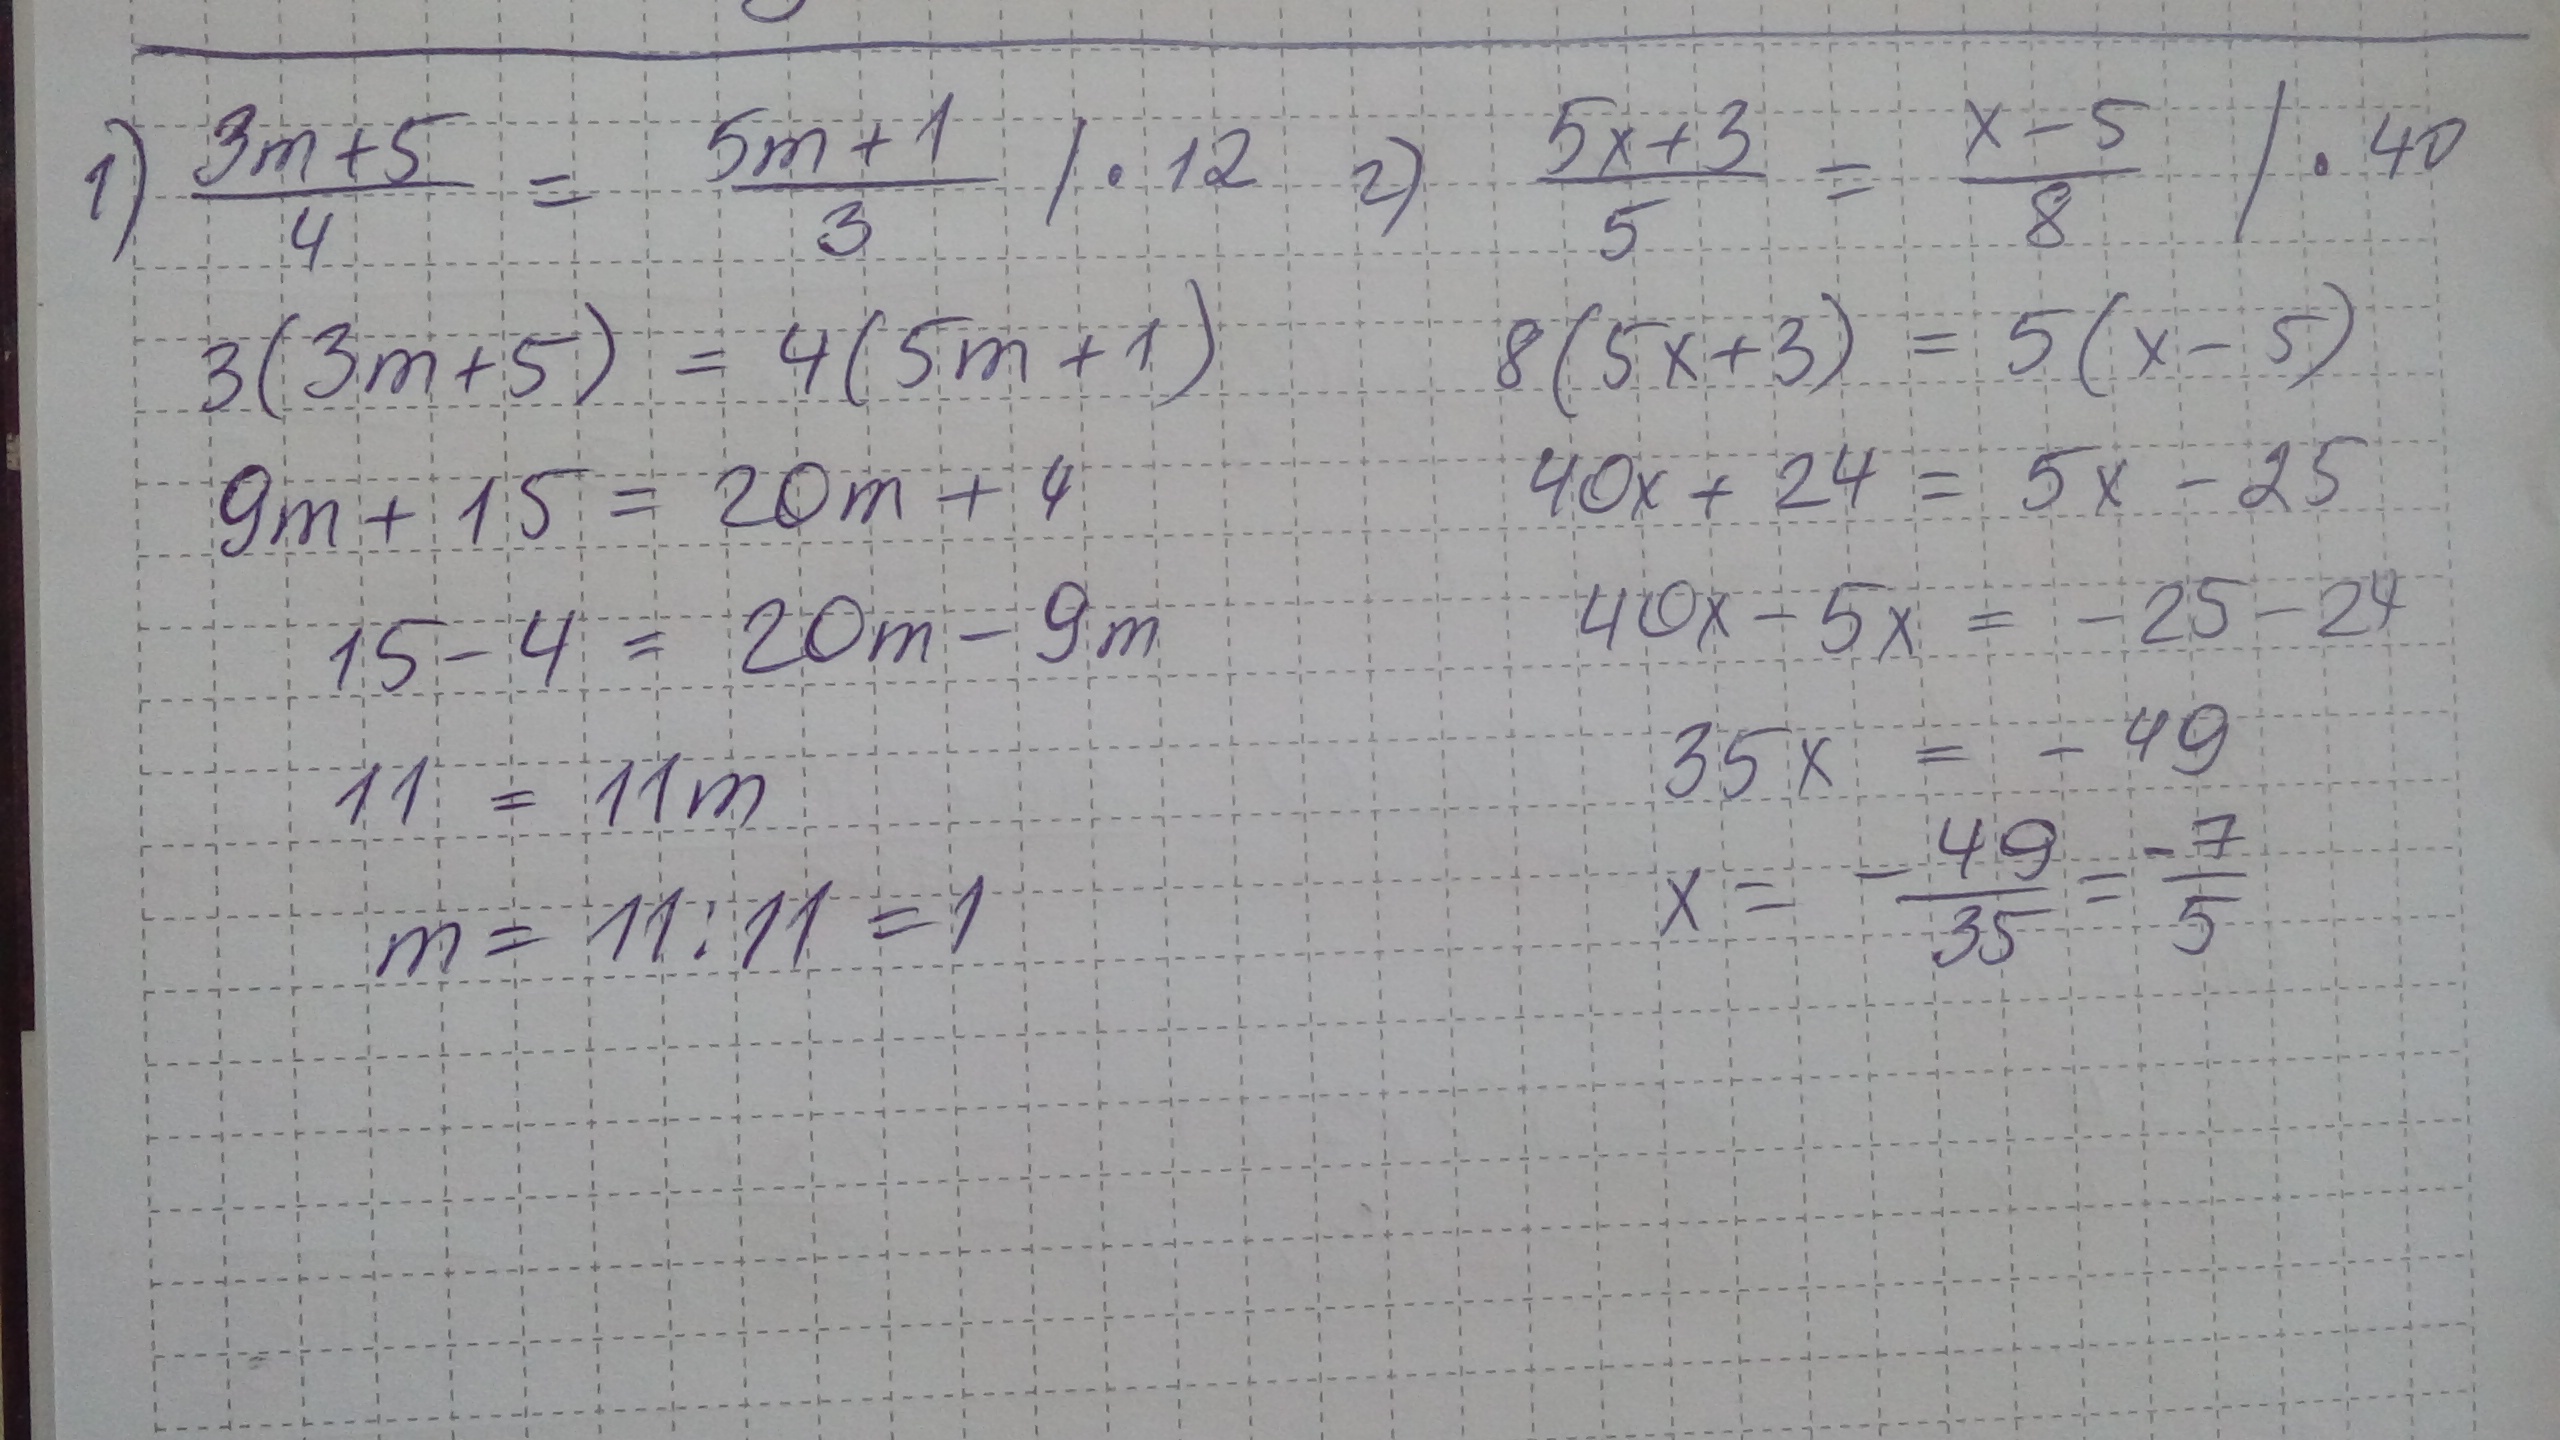 1) (3m+5)/4 = (5m+1)/3 / · 12
3(3m+5) = 4(5m+1)
9m + 15 = 20m + 4
15 - 4 = 20m - 9m
11 = 11m
m = 11 : 11 = 1
2) (5x+3)/5 = (x-5)/8 / · 40
8(5x+3) = 5(x-5)
40x + 24 = 5x - 25
40x - 5x = -25 - 24
35x = -49
x = -49/35 = -7/5